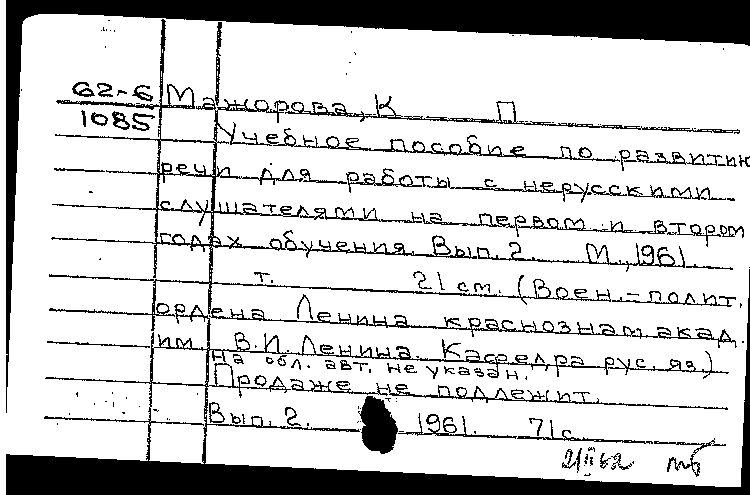 62-6 Мажорова, К П
1085 Учебное пособие по развитию
речи для работы с нерусскими
слушателями на первом и втором
годах обучения. Вып. 2. М., 1961.
т. 21 см. (Воен.-полит.
ордена Ленина краснознам. акад.
им. В.И. Ленина. Кафедра рус. яз.)
На обл. авт. не указан.
Продаже не подлежит.
Вып. 2. 1961. 71 с.
2/II 62